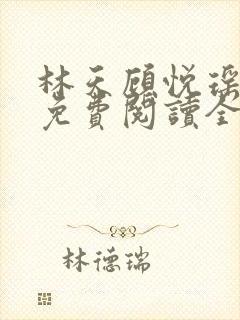 林天顧悅瑶
免費閱讀全
林德瑞